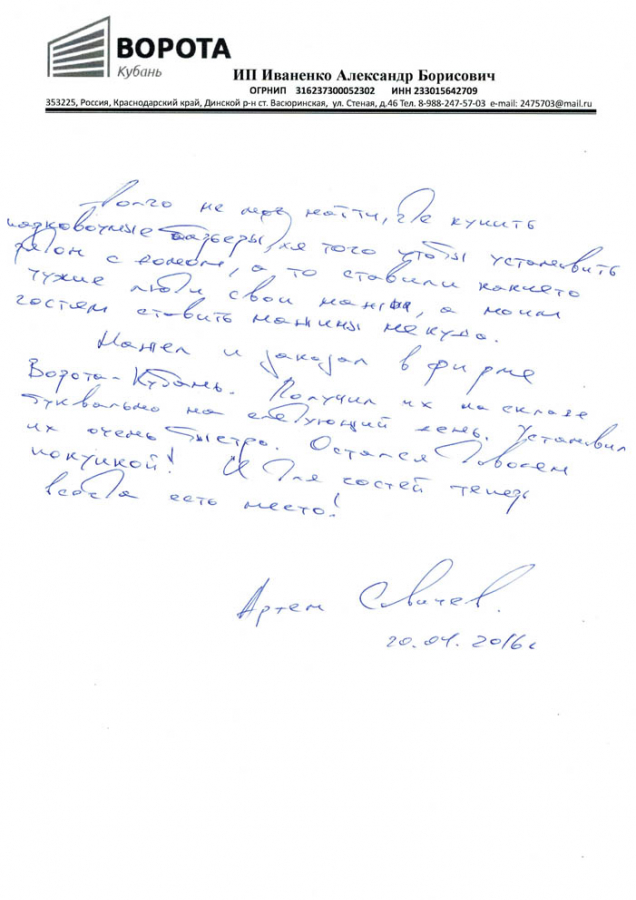 ВОРОТА
Кубань
ИП Иваненко Александр Борисович
ОГРНИП 316237300052302 ИНН 233015642709
353225, Россия, Краснодарский край, Динской р-н ст. Васюринская, ул. Степная, д.46 Тел. 8-988-247-57-03 e-mail: 2475703@mail.ru
Долго не мог найти, где купить
парковочные барьеры для того чтобы установить
рядом с домом, а то ставили какието
чужие люди свои машины, а моим
гостям ставить машины некуда.
Нашел и заказал в фирме
Ворота-Кубань. Получил их на складе
буквально на следующий день. Установил
их очень быстро. Остался доволен
покупкой! И для гостей теперь
всегда есть место!
Артем
20.04.2016г